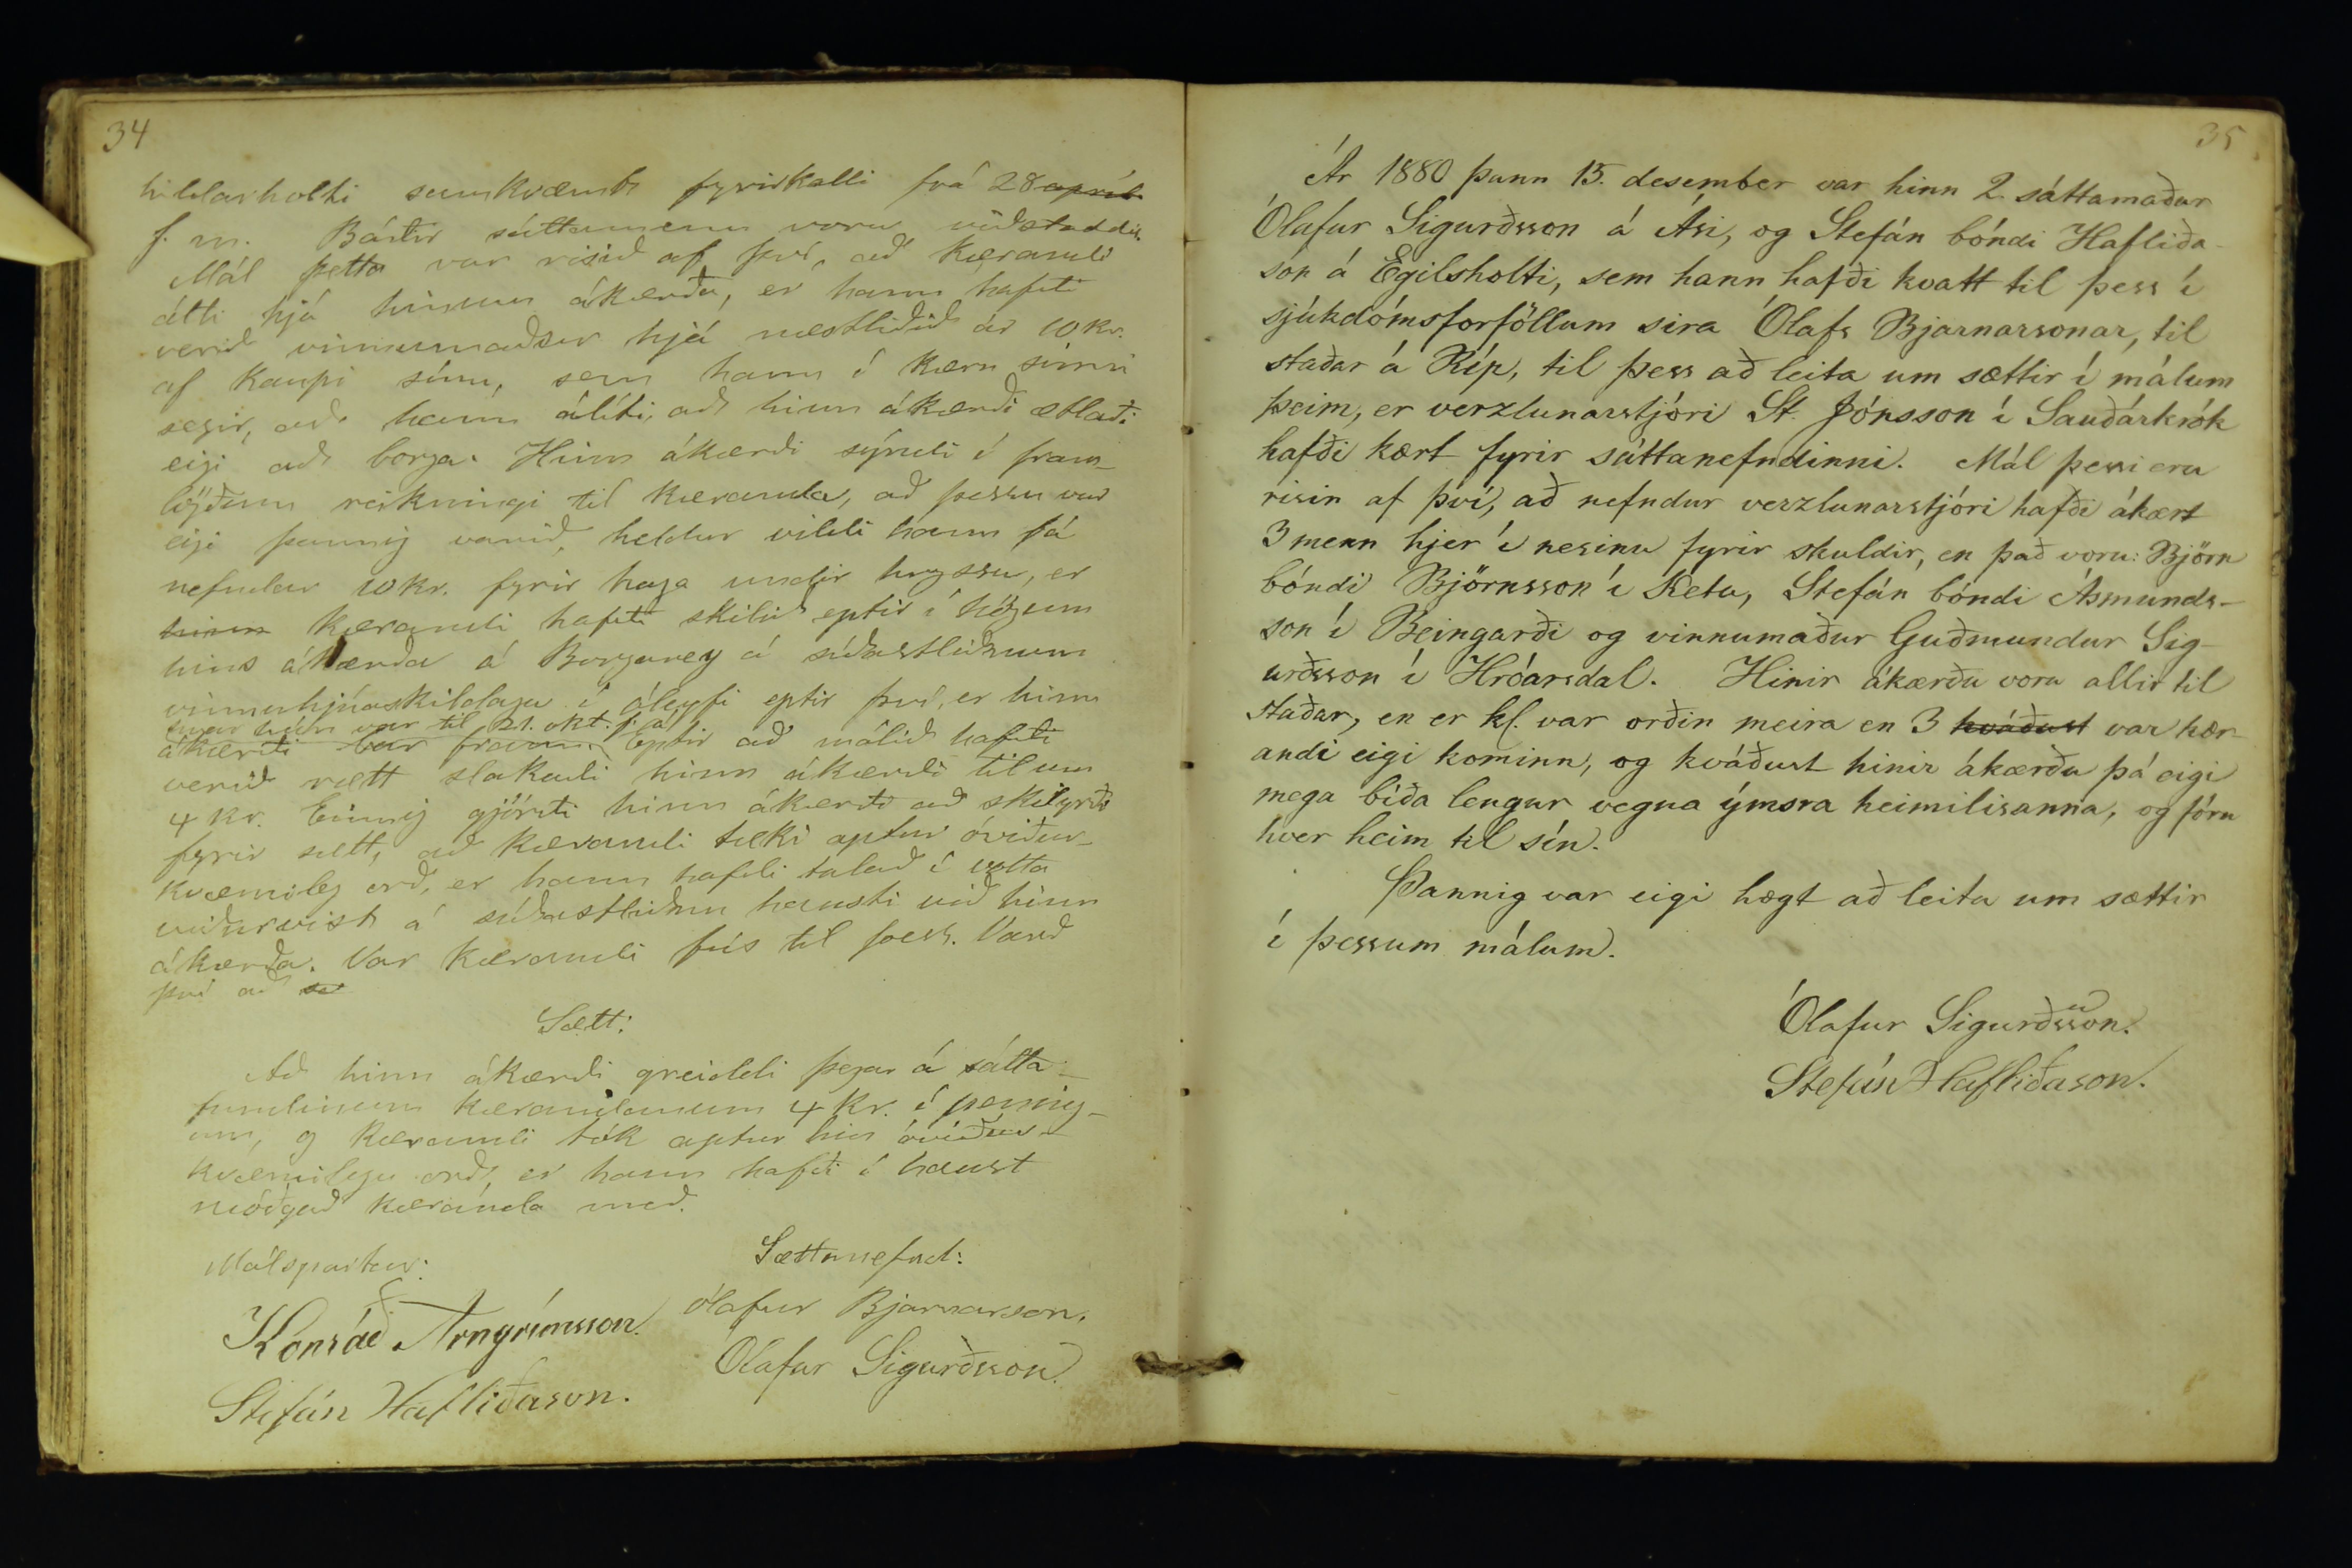 34
hildarholti samkvæmt fyrirkalli frá 28 apríl
f. m. Báðir sáttamenn voru viðstaddir.
Mál þetta var risið af því, að kærandi
átti hjá hinum ákærða, er hann hafði
verið vinnumaður hjá næstliðið ár 10 kr.
af kaupi sínu, sem hann í kæru sinni
segir, að hann áliti, að hinn ákærði ætlaði
eigi að borga. Hinn ákærði sýndi í fram-
lögðum reikningi til kæranda, að þessu var
eigi þannig varið, heldur vildi hann fá
nefndar 10 kr. fyrir haga undir hryssu, er
hinn kærandi hafði skilið eptir í högum
hins ákærða á Borgarey á síðastliðnum
vinnuhjúaskildaga í óleyfi eptir því, er hinn
hvar hún var til 21. okt. f. á.
ákærði bar fram. Eptir að málið hafði
verið rætt slakaði hinn ákærði til um
4 kr. Einnig gjörði hinn ákærði að skilyrði
fyrir sætt, að kærandi tæki aptur óviður-
kvæmileg orð, er hann hafði talað í votta
viðurvist á síðastliðnu hausti við hinn
ákærða. Var kærandi fús til þess. Varð
því að sv
Sætt:
Að hinn ákærði greiddi þegar á sátta-
fundinum kærandanum 4 kr. í pening-
um, og kærandi tók aptur hin óviður-
kvæmilegu orð, er hann hafði í haust
móðgað kæranda með.
Málspartar: Sættanefnd:
Konráð Arngrímsson. Ólafur Bjarnarson.
Stefán Hafliðason. Ólafur Sigurðsson.
35
Ár 1880 þann 15. desember var hinn 2. sáttamaður
Ólafur Sigurðsson á Ási, og Stefán bóndi Hafliða-
son á Egilsholti, sem hann hafði kvatt til þess í
sjúkdómsforföllum síra Ólafs Bjarnarsonar, til
staðar á Ríp, til þess að leita um sættir í málum
þeim, er verzlunarstjóri St. Jónsson í Sauðárkrók
hafði kært fyrir sáttanefndinni. Mál þessi eru
risin af því, að nefndur verzlunarstjóri hafði ákært
3 menn hjer í nesinu fyrir skuldir, en það voru: Björn
bóndi Björnsson í Ketu, Stefán bóndi Ásmunds-
son í Beingarði og vinnumaður Guðmundur Sig-
urðsson í Hróarsdal. Hinir ákærðu voru allir til
staðar, en er kl. var orðin meira en 3 kváðust var kær-
andi eigi kominn, og kváðust hinir ákærðu þá eigi
mega bíða lengur vegna ýmsra heimilisanna, og fóru
hver heim til sín.
Þannig var eigi hægt að leita um sættir
í þessum málum.
Ólafur Sigurðsson.
Stefán Hafliðason.